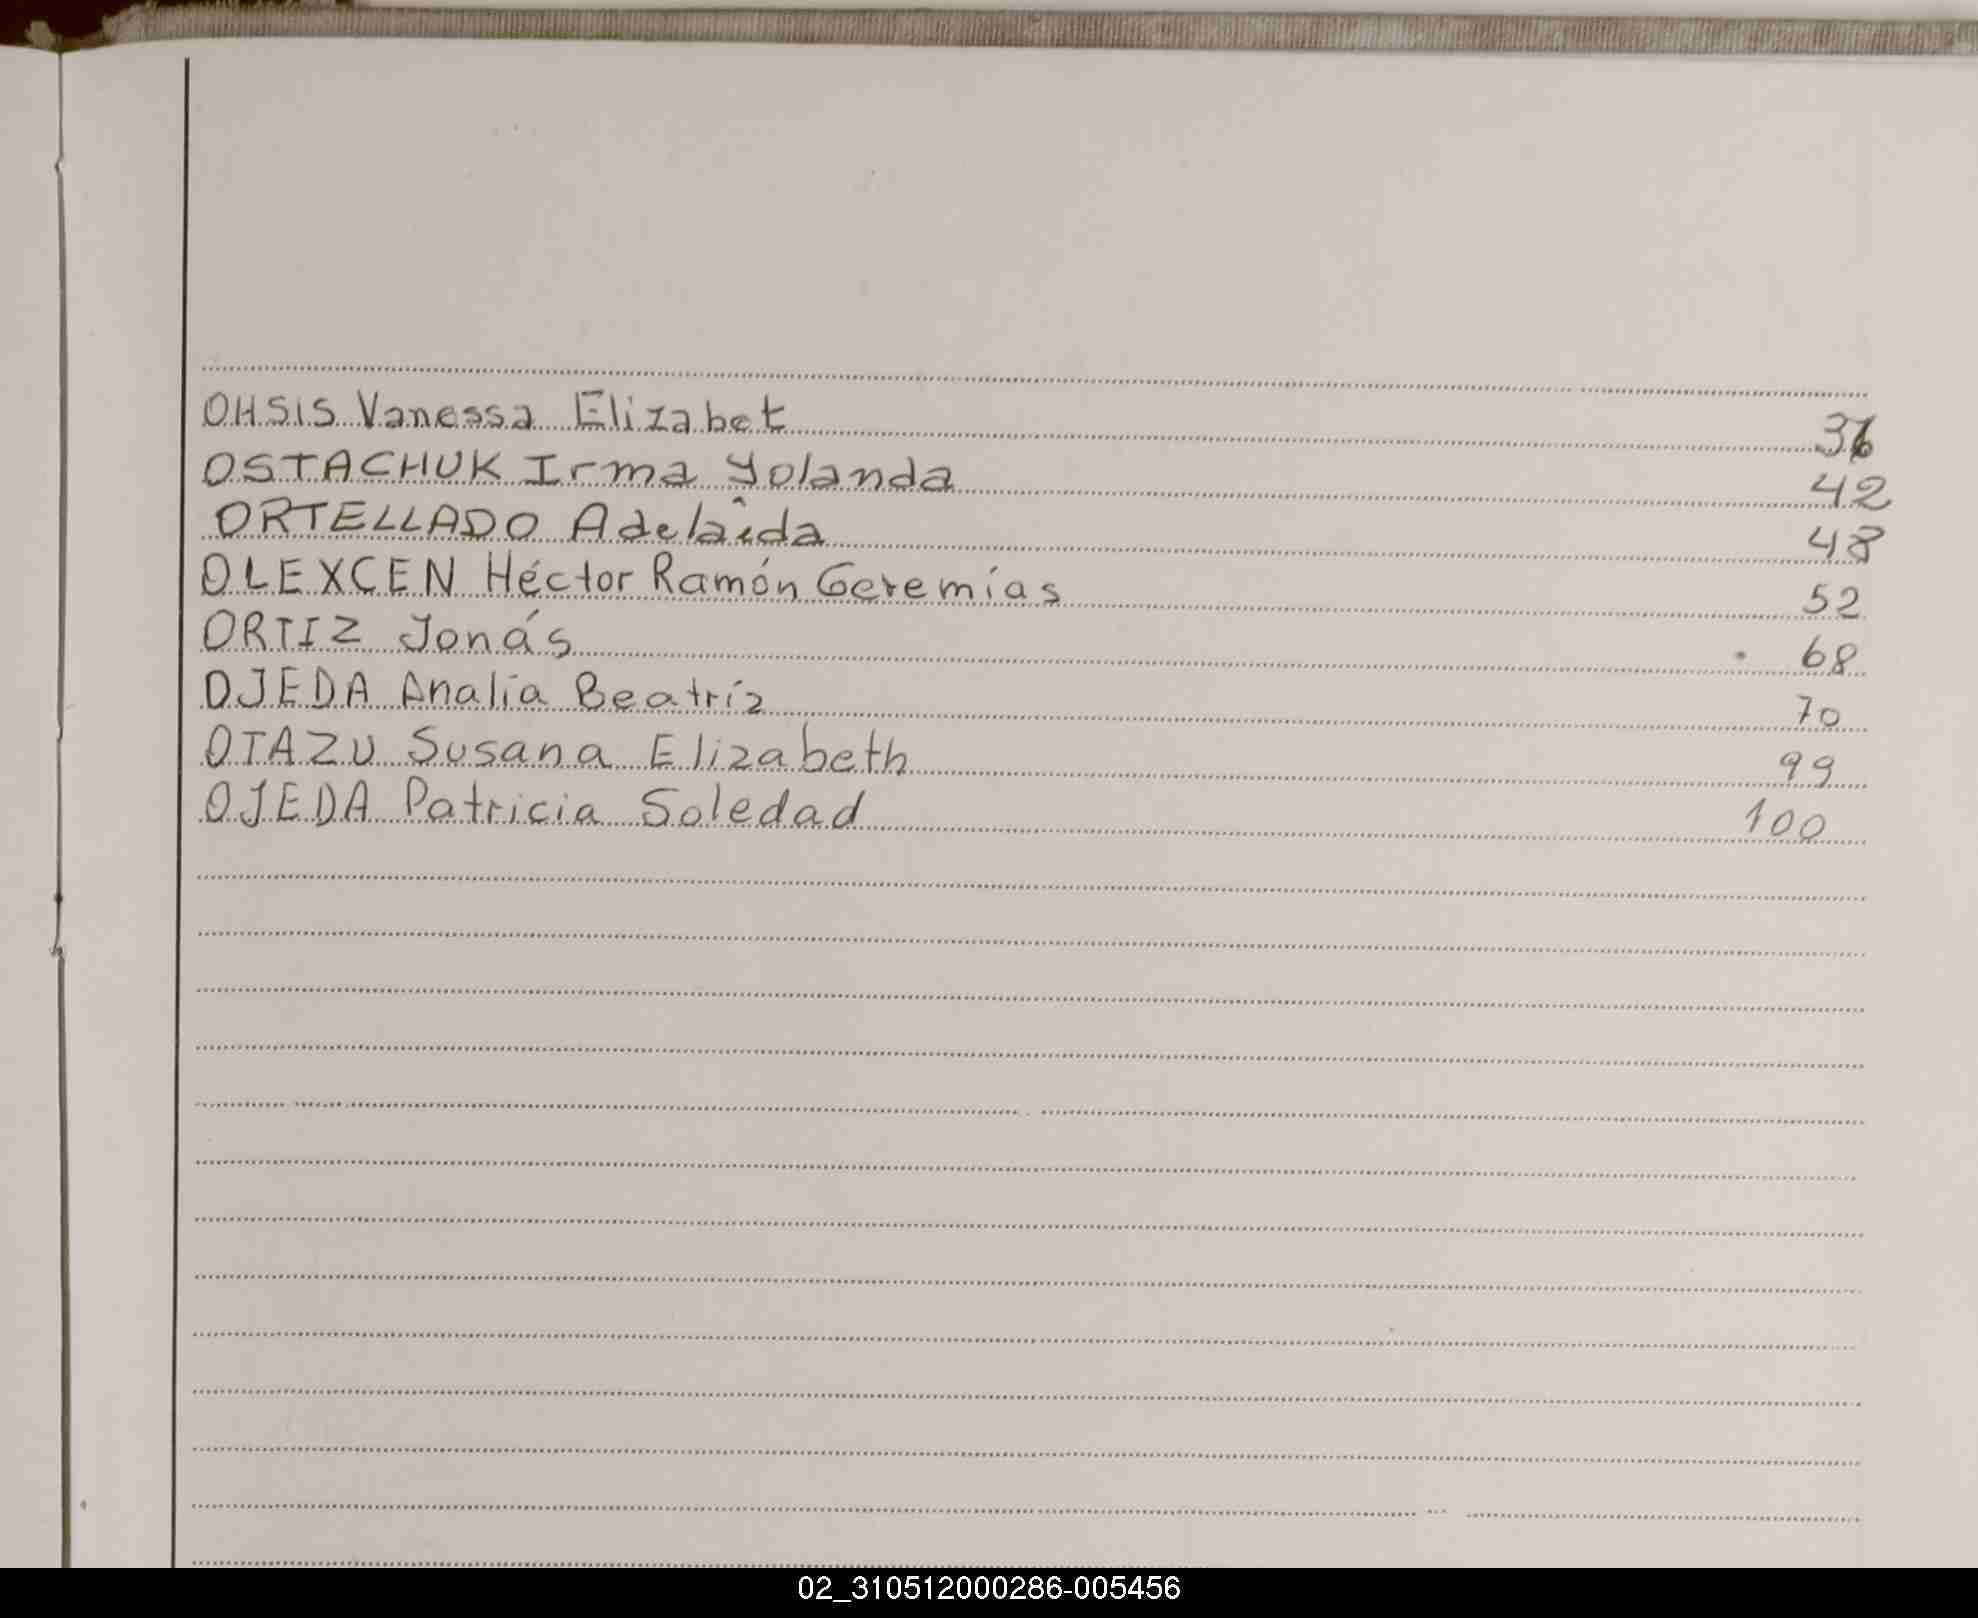 OHSIS Vanessa Elizabet 36
OSTACHUK Irma Yolanda 42
ORTELLADO Adelaida 48
OLEXCEN Héctor Ramón Geremías 52
ORTIZ Jonás 68
OJEDA Analía Beatríz 70
OTAZU Susana Elizabeth 99
OJEDA Patricia Soledad 100
02_310512000286-005456